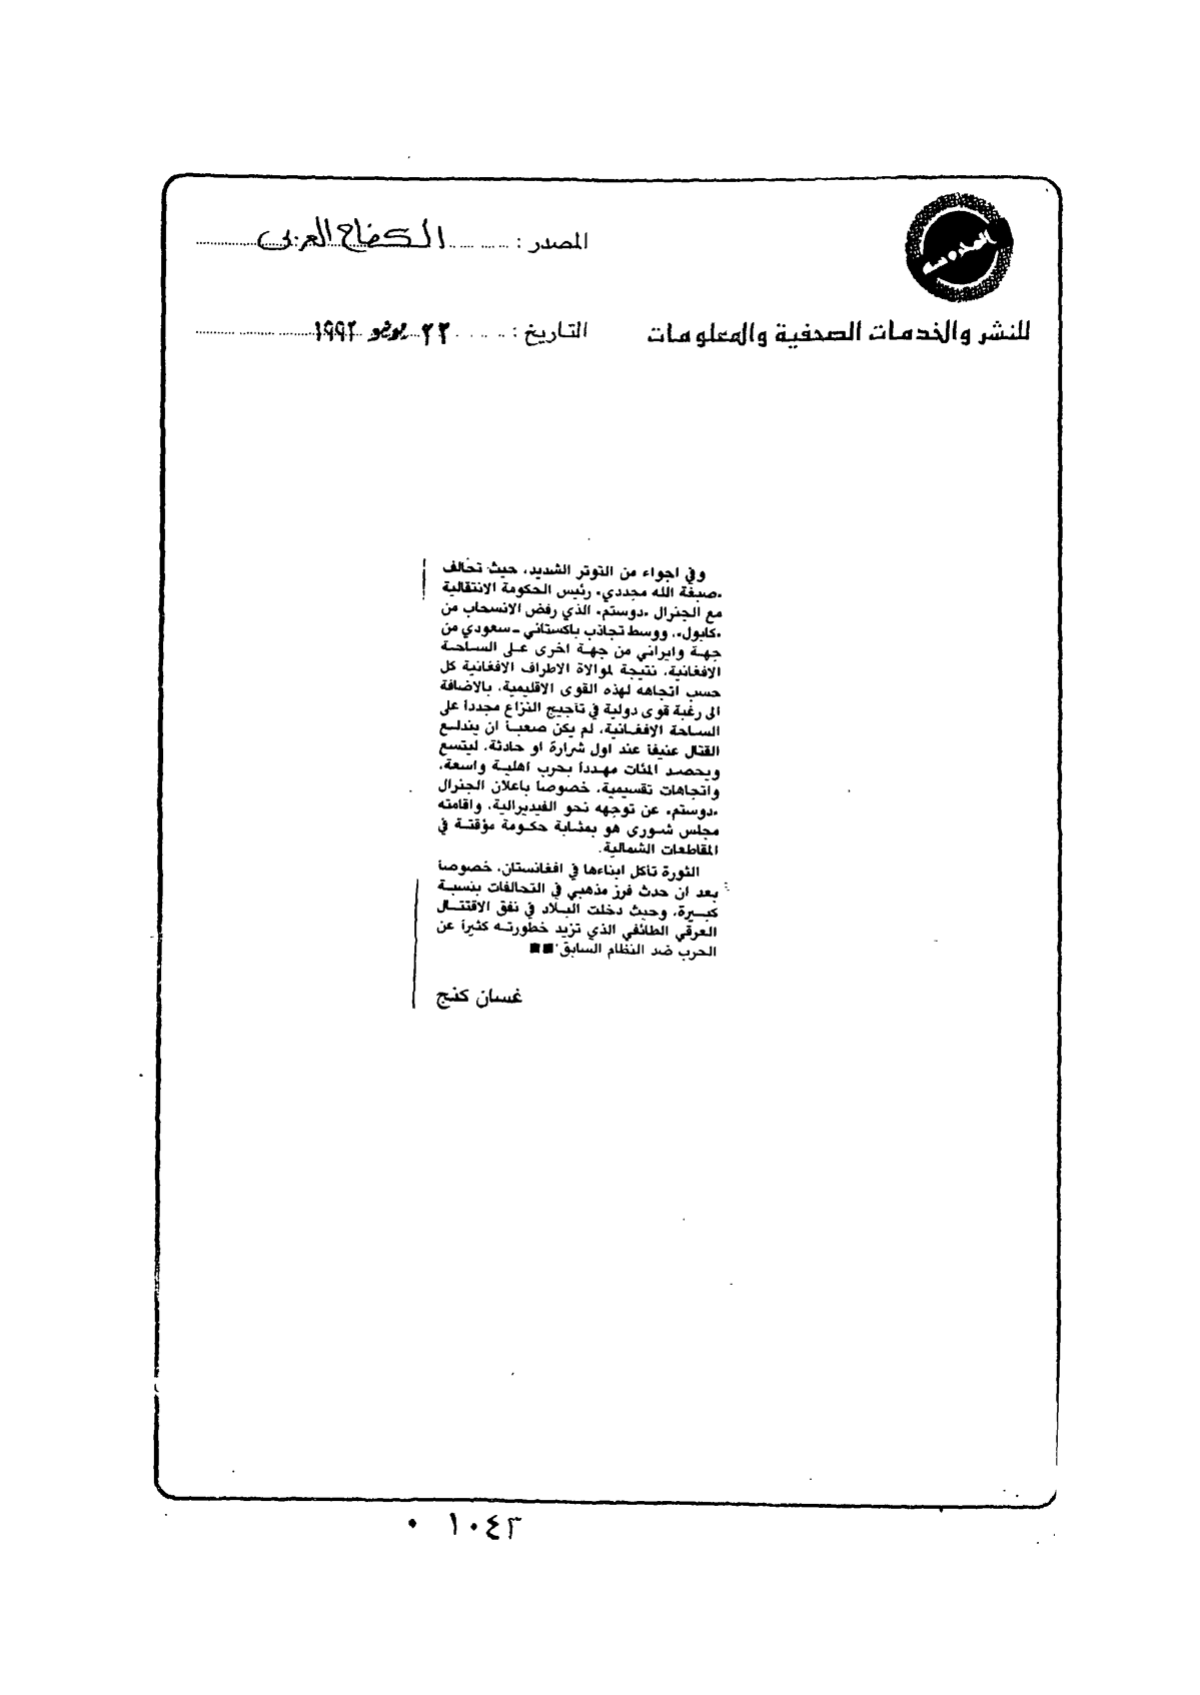 المصدر : الكفاح العربى
للنشر والخدمات الصحفية والمعلومات
التاريخ : ٢٢ يونيو ١٩٩٢
وفي اجواء من التوتر الشديد، حيث تحالف
«صبغة الله مجددي» رئيس الحكومة الانتقالية
مع الجنرال «دوستم» الذي رفض الانسحاب من
«كابول»، ووسط تجاذب باكستاني - سعودي من
جهة وايراني من جهة اخرى على الساحة
الافغانية، نتيجة لموالاة الاطراف الافغانية كل
حسب اتجاهه لهذه القوى الاقليمية، بالاضافة
الى رغبة قوى دولية في تأجيج النزاع مجدداً على
الساحة الافغانية، لم يكن صعباً ان يندلع
القتال عنيفاً عند اول شرارة او حادثة، ليتسع
ويحصد المئات مهدداً بحرب اهلية واسعة،
واتجاهات تقسيمية، خصوصاً باعلان الجنرال
«دوستم» عن توجهه نحو الفيديرالية، واقامته
مجلس شورى هو بمثابة حكومة مؤقتة في
المقاطعات الشمالية.
الثورة تأكل ابناءها في افغانستان، خصوصاً
بعد ان حدث فرز مذهبي في التحالفات بنسبة
كبيرة، وحيث دخلت البلاد في نفق الاقتتال
العرقي الطائفي الذي تزيد خطورته كثيراً عن
الحرب ضد النظام السابق ■■
غسان كنج
٠ ١٠٤٣